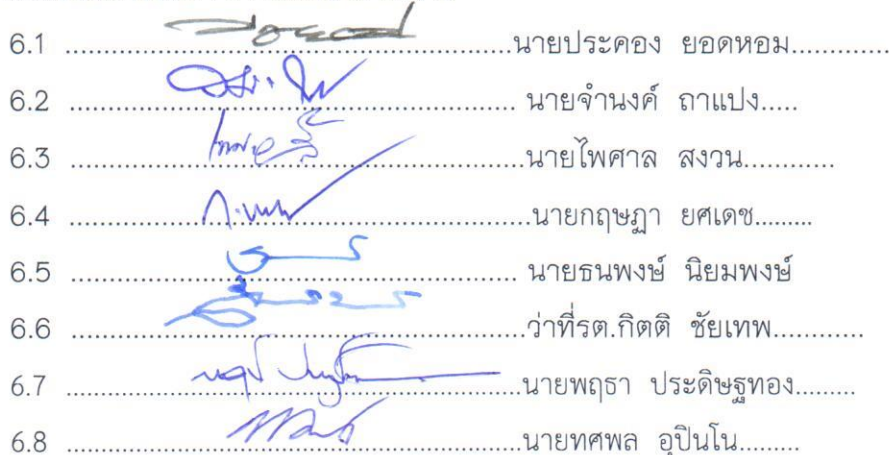 6.1 ................นายประคอง ยอดหอม.............
6.2 ................ นายจำนงค์ ถาแปง.....
6.3 ................นายไพศาล สงวน............
6.4 ................นายกฤษฏา ยศเดช.........
6.5 ................ นายธนพงษ์ นิยมพงษ์
6.6 ................ว่าที่รต.กิตติ ชัยเทพ............
6.7 ................นายพฤธา ประดิษฐทอง........
6.8 ................นายทศพล อุปินโน.........